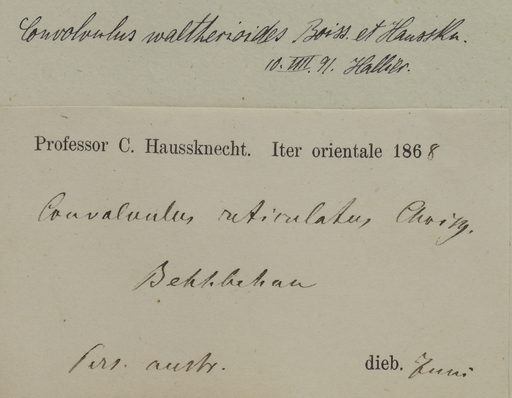 Convolvulus waltherioides Boiss. et Hausskn.
10. VIII. 91. Hallier.
Professor C. Haussknecht. Iter orientale 1868
Convolvulus reticulatus Choisy.
Behbehan
Pers. austr.
dieb. Juni